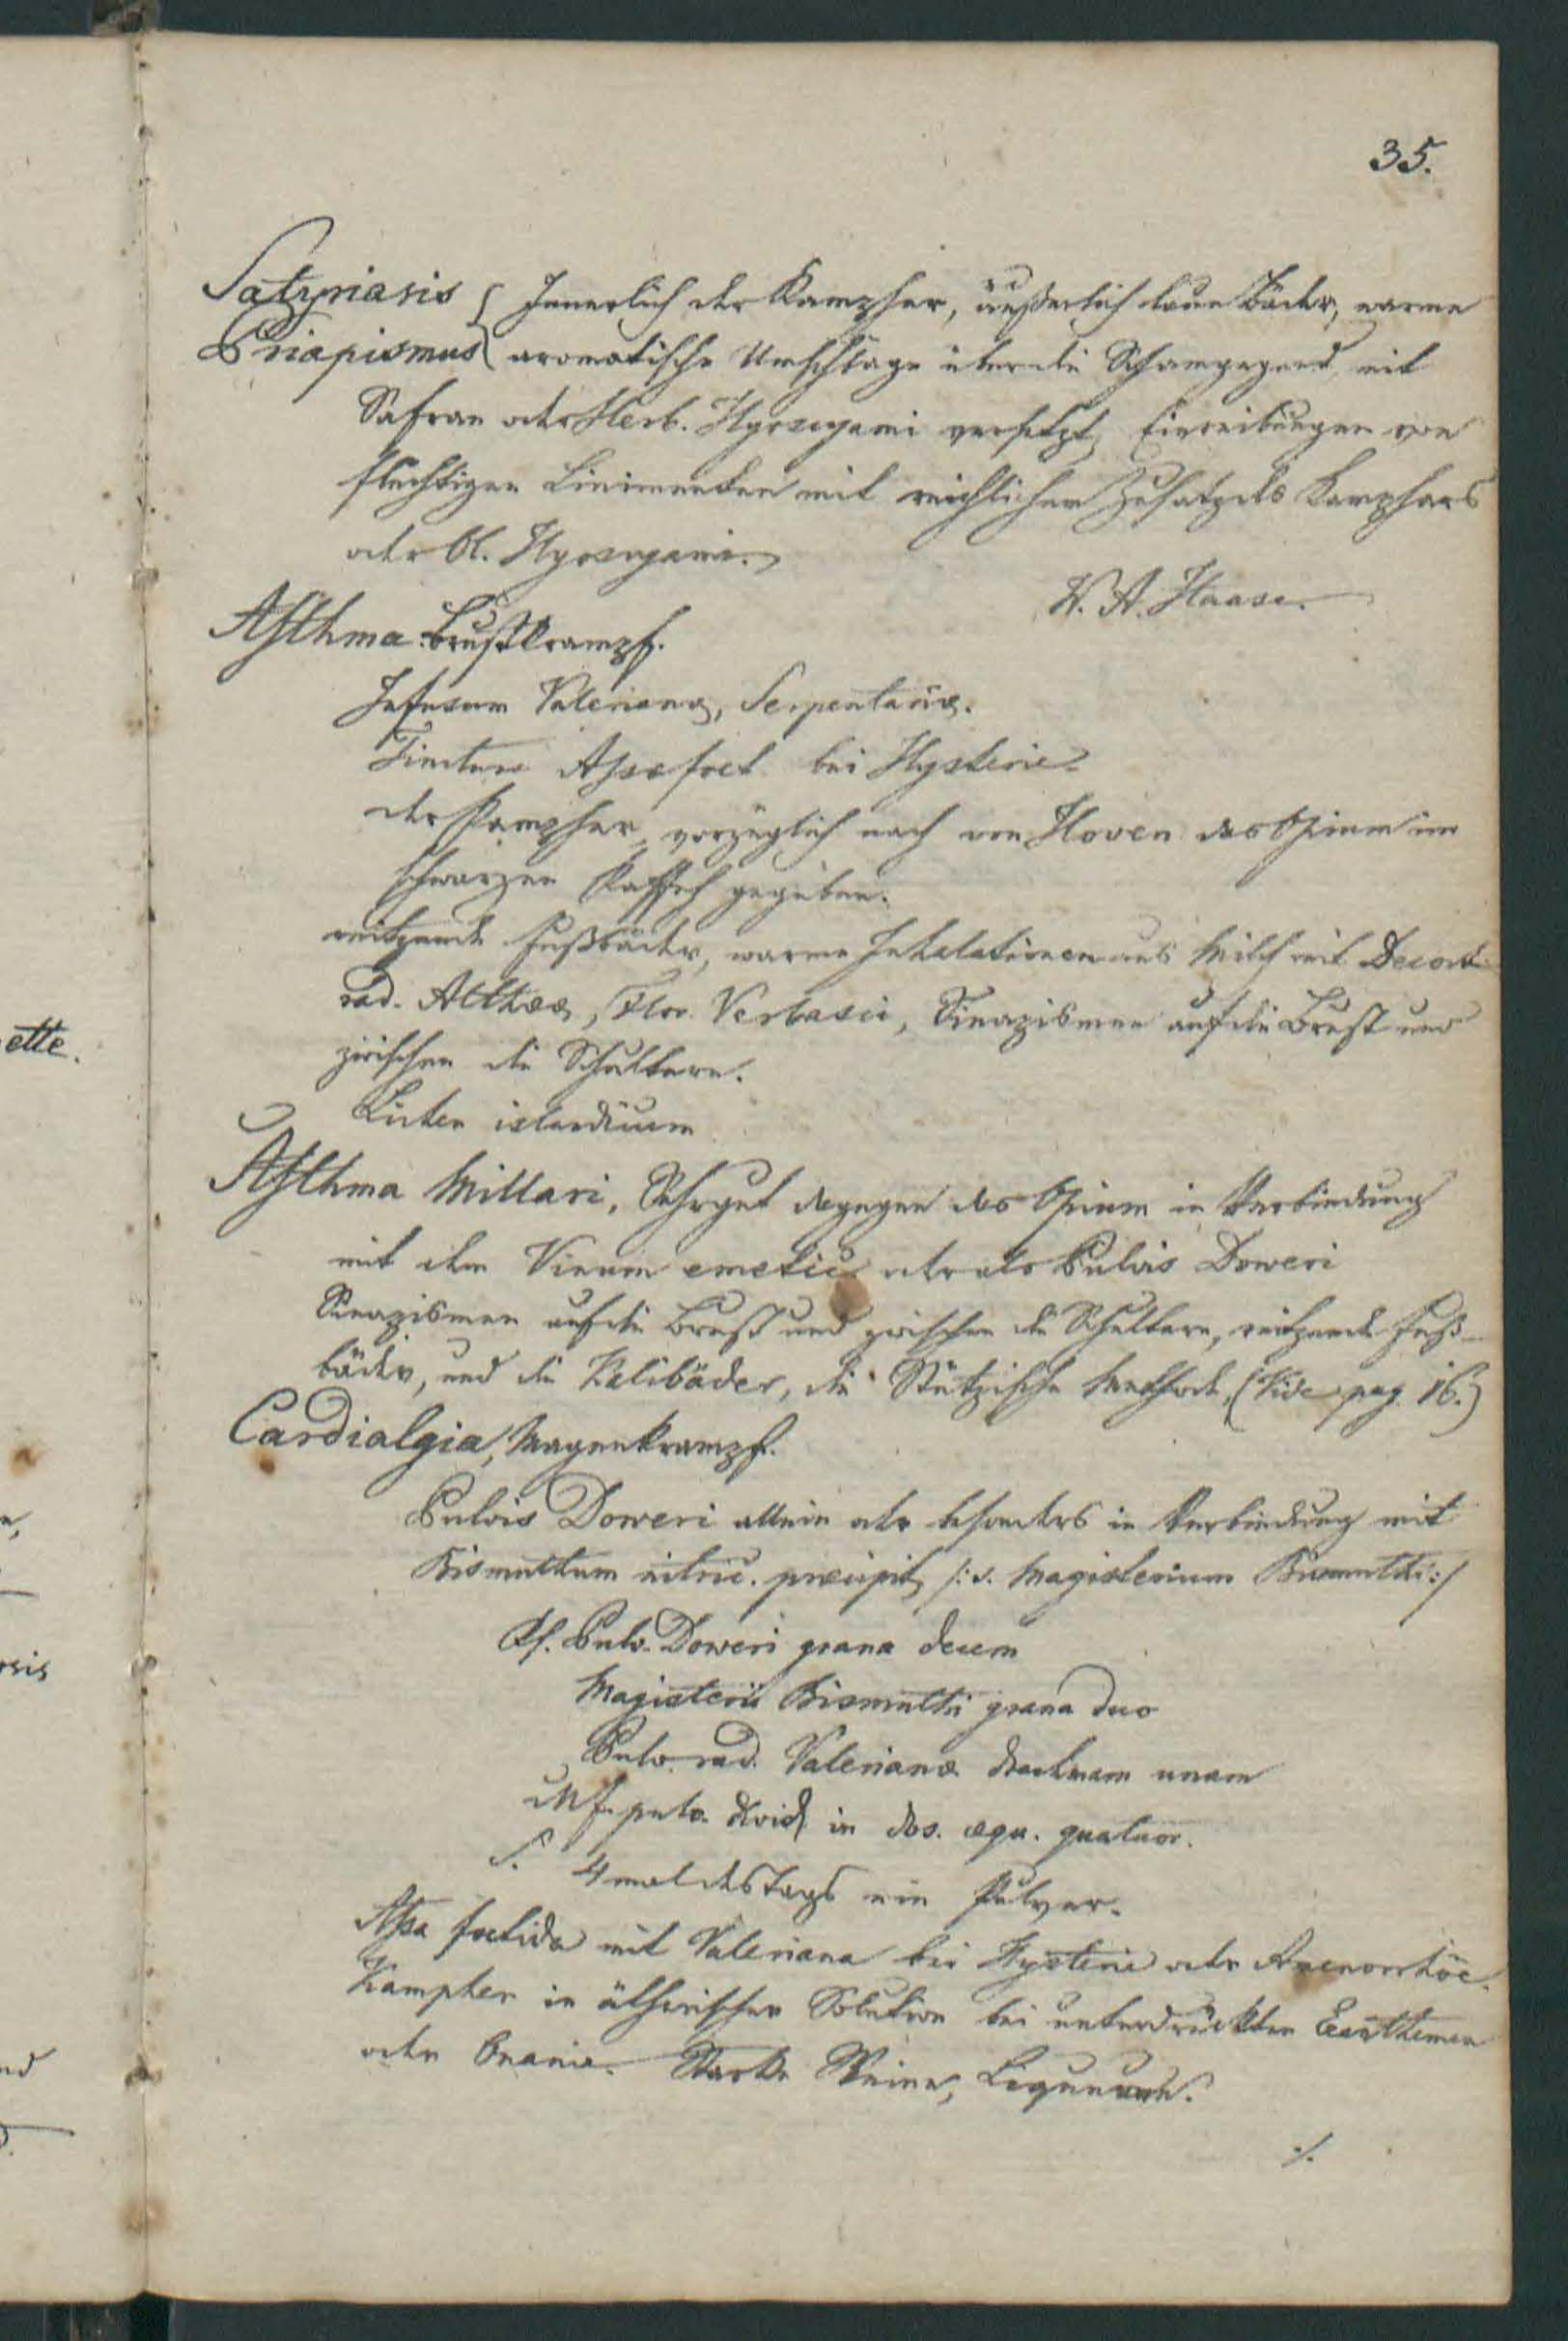 35.
Satyriasis { Innerlich der Kampher, äußerlich laue Bäder, warme
Priapismus { aromatische Umschläge über die Schamgegend, mit
Safran oder Herb. Hyoscyami versetzt, Einreibungen von
flüchtigen Linimenten mit reichlichem Zusatz des Kamphers
oder Ol. Hyoscyami.
W. A. Haase.
Asthma. Brustkrampf.
Infusum Valerianæ, Serpentariæ.
Tinctura Assæ foet. bei Hysterie.
der Kampher, vorzüglich nach von Hoven das Opium im
schwarzen Kaffeh gegeben.
reitzende Fußbäder, warme Inhalationen aus Milch mit Decoct.
rad. Altheæ, Flor. Verbasci, Sinapismen auf die Brust und
zwischen die Schultern.
Lichen islandicum
Asthma Millari, Sehr gut dagegen das Opium in Verbindung
mit dem Vinum emetic. oder als Pulvis Doweri
Sinapismen auf die Brust und zwischen die Schultern, reitzende Fuß-
bäder, und die Kalibäder, die Stützische Methode. (Vide pag. 16.)
Cardialgia, Magenkrampf.
Pulvis Doweri allein oder besonders in Verbindung mit
Bismuthum nitric. præcipit. /: s. Magisterium Bismuthi :/
Rf. Pulv. Doweri grana decem
Magisterii Bismuthi grana duo
Pulv. rad. Valerianæ drachmam unam
Mf. pulv. divid. in dos. æqu. quatuor.
S. 4 mal des Tags ein Pulver.
Assa foetida mit Valeriana bei Hysterie oder Amenorrhöe.
Kampher in ätherischer Solution bei unterdrückten Exanthemen
oder Onanie. Starke Weine,
./.
ette.
nd